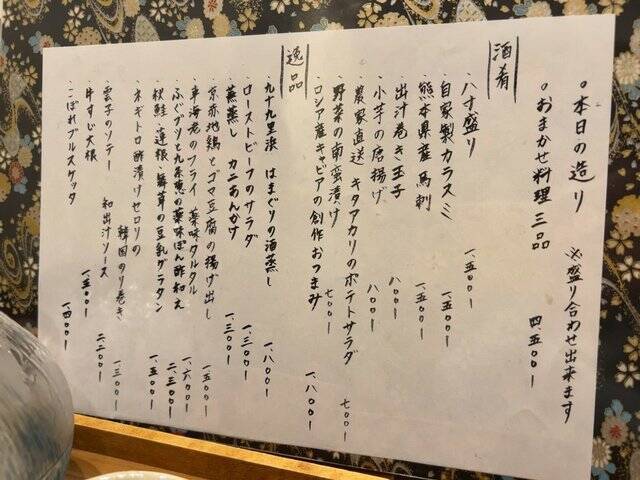 ○本日の造り ※盛り合わせ出来ます
○おまかせ料理三品 四、五〇〇ー
酒肴
・八寸盛り 一、五〇〇ー
・自家製カラスミ 一、五〇〇ー
・熊本県産馬刺 一、五〇〇ー
・出汁巻き玉子 八〇〇ー
・小芋の唐揚げ 八〇〇ー
・農家直送 キタアカリのポテトサラダ 七〇〇ー
・野菜の南蛮漬け 七〇〇ー
・ロシア産キャビアの創作おつまみ 一、八〇〇ー
逸品
・九十九里浜 はまぐりの酒蒸し 一、八〇〇ー
・ローストビーフのサラダ 一、三〇〇ー
・蕪蒸し カニあんかけ 一、三〇〇ー
・京赤地鶏とゴマ豆腐の揚げ出し 一、五〇〇ー
・車海老のフライ 薬味タルタル 一、六〇〇ー
・ふぐブツと九条葱の薬味ぽん酢和え 二、三〇〇ー
・秋鮭・蓮根・舞茸の豆乳グラタン 一、五〇〇ー
・ネギトロ酢漬けセロリの
韓国のり巻き 一、三〇〇ー
・雲子のソテー
和出汁ソース 二、二〇〇ー
・牛すじ大根 一、五〇〇ー
・こぼれブルスケッタ 一、四〇〇ー